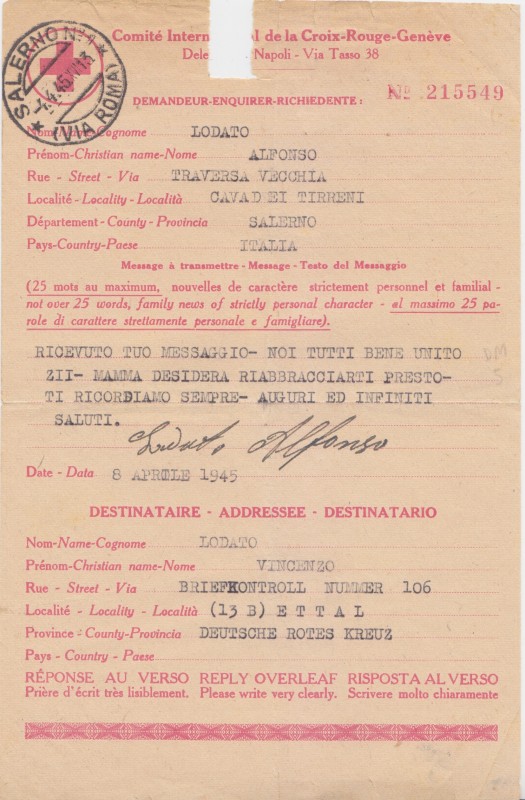 Comité Inter l de la Croix-Rouge-Genève
Dele Napoli - Via Tasso 38
SALERNO Nº 1
(VIA ROMA)
DEMANDEUR-ENQUIRER-RICHIEDENTE:
Nº 215549
Nom-Name-Cognome LODATO
Prénom-Christian name-Nome ALFONSO
Rue - Street - Via TRAVERSA VECCHIA
Localité - Locality - Località CAVAD EI TIRRENI
Département - County - Provincia SALERNO
Pays-Country-Paese ITALIA
Message à transmettre - Message - Testo del Messaggio
(25 mots au maximum, nouvelles de caractère strictement personnel et familial -
not over 25 words, family news of strictly personal character - al massimo 25 pa-
role di carattere strettamente personale e famigliare).
RICEVUTO TUO MESSAGGIO- NOI TUTTI BENE UNITO
ZII- MAMMA DESIDERA RIABBRACCIARTI PRESTO-
TI RICORDIAMO SEMPRE- AUGURI ED INFINITI
SALUTI.
Lodato Alfonso
Date - Data 8 APRILE 1945
DESTINATAIRE - ADDRESSEE - DESTINATARIO
Nom-Name-Cognome LODATO
Prénom-Christian name-Nome VINCENZO
Rue - Street - Via BRIEFKONTROLL NUMMER 106
Localité - Locality - Località (13 B) E T T A L
Province - County-Provincia DEUTSCHE ROTES KREUZ
Pays - Country - Paese
RÉPONSE AU VERSO REPLY OVERLEAF RISPOSTA AL VERSO
Prière d'écrit très lisiblement. Please write very clearly. Scrivere molto chiaramente